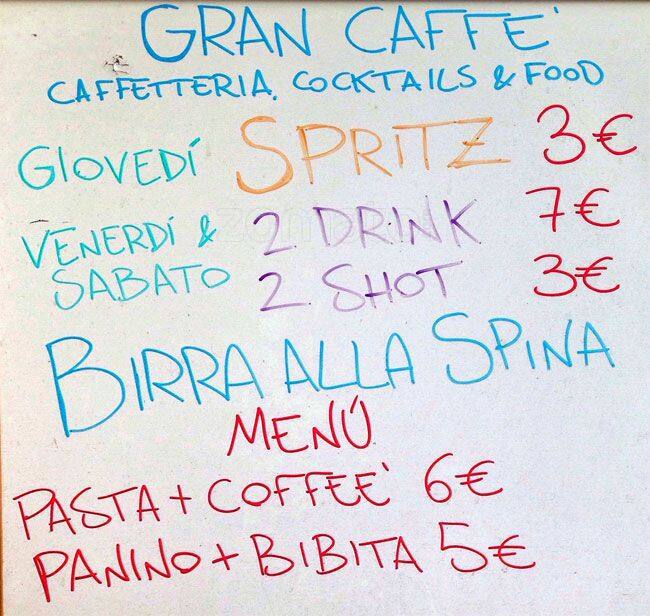 GRAN CAFFE'
CAFFETTERIA, COCKTAILS & FOOD
GIOVEDÍ SPRITZ 3€
VENERDÍ & SABATO 2 DRINK 7€
2 SHOT 3€
BIRRA ALLA SPINA
MENÚ
PASTA + COFFEE' 6€
PANINO + BIBITA 5€